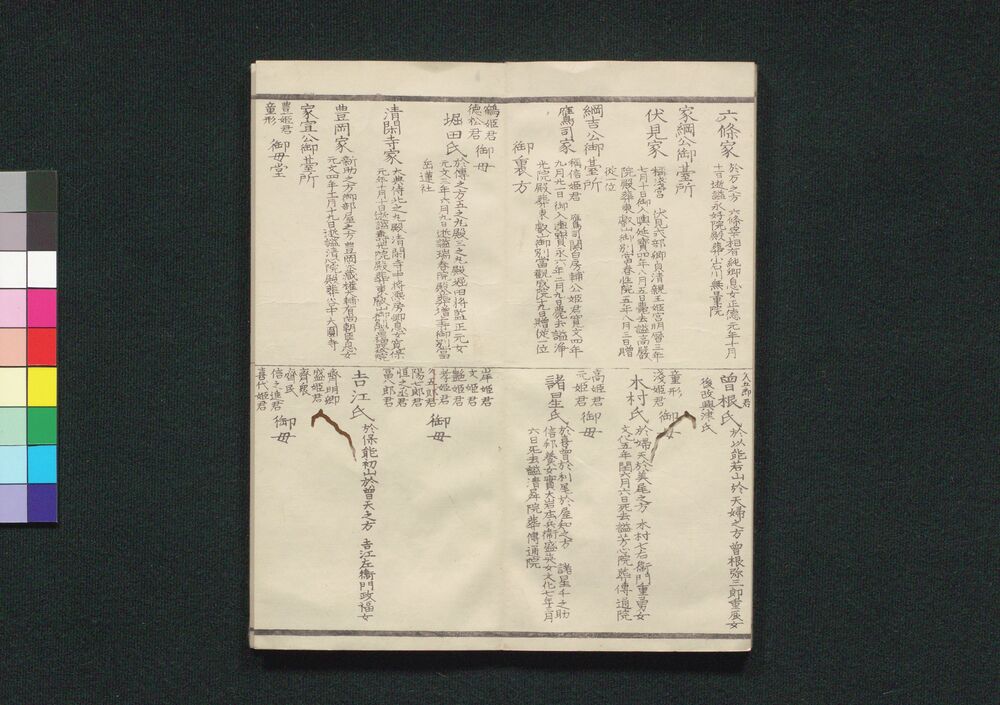 六條家
於万之方 六條宰相有純卿息女正德元年十月
十日逝謚永好院殿葬小石川無量院
家綱公御臺所
伏見家
稱淺宮 伏見式部卿貞清親王姫宮明曆三年
七月十日御入輿延寶四年八月五日薨去謚高嚴
院殿葬東叡山御別當春性院五年八月三日贈
從一位
綱吉公御臺所
鷹司家
稱信姫君 鷹司関白房輔公姫君寛文四年
九月廿一日御入輿寶永六年二月九日薨去謚淨
光院殿葬東叡山御別當觀成院十九日贈從一位
御裏方
鶴姫君
德松君
御母
堀田氏
於傳之方五之丸殿三之丸殿 堀田将監正元女
元文三年六月九日逝謚瑞春院殿葬増上寺御別當
岳蓮社
清閑寺家
大典侍北之丸殿清閑寺中将凞房卿息女寛保
元年十月十日逝謚壽光院殿葬東叡山御別當
豊岡家
新助之方御部屋之方豊岡大藏權大輔有尚朝臣息女
元文四年十月十九日逝謚清心院殿葬谷中大圓寺
家宣公御基所
豊姫君
童形
御母堂
久五郎君
曽根氏
後改興津氏
於以能若山於天婦之方 曽根弥三郎重辰女
童形
淺姫君
御母
木村氏
於婦天於美尾之方 木村七右衛門重勇女
文化五年閏六月六日死去謚芳心院葬傳通院
高姫君
元姫君
御母
諸星氏
於喜曽於利尾於屋知之方 諸星千之助
信邦養女實大岩庄兵衛盛英女文化七年三月
六日死去謚清昇院葬傳通院
岸姫君
文姫君
艶姫君
孝姫君
陽七郎君
恒之丞君
冨八郎君
御母
吉江氏
於保能初山於曽天之方 吉江左衛門政福女
齊明卿
盛姫君
齊衆
齊民
信之進君
喜代姫君
御母